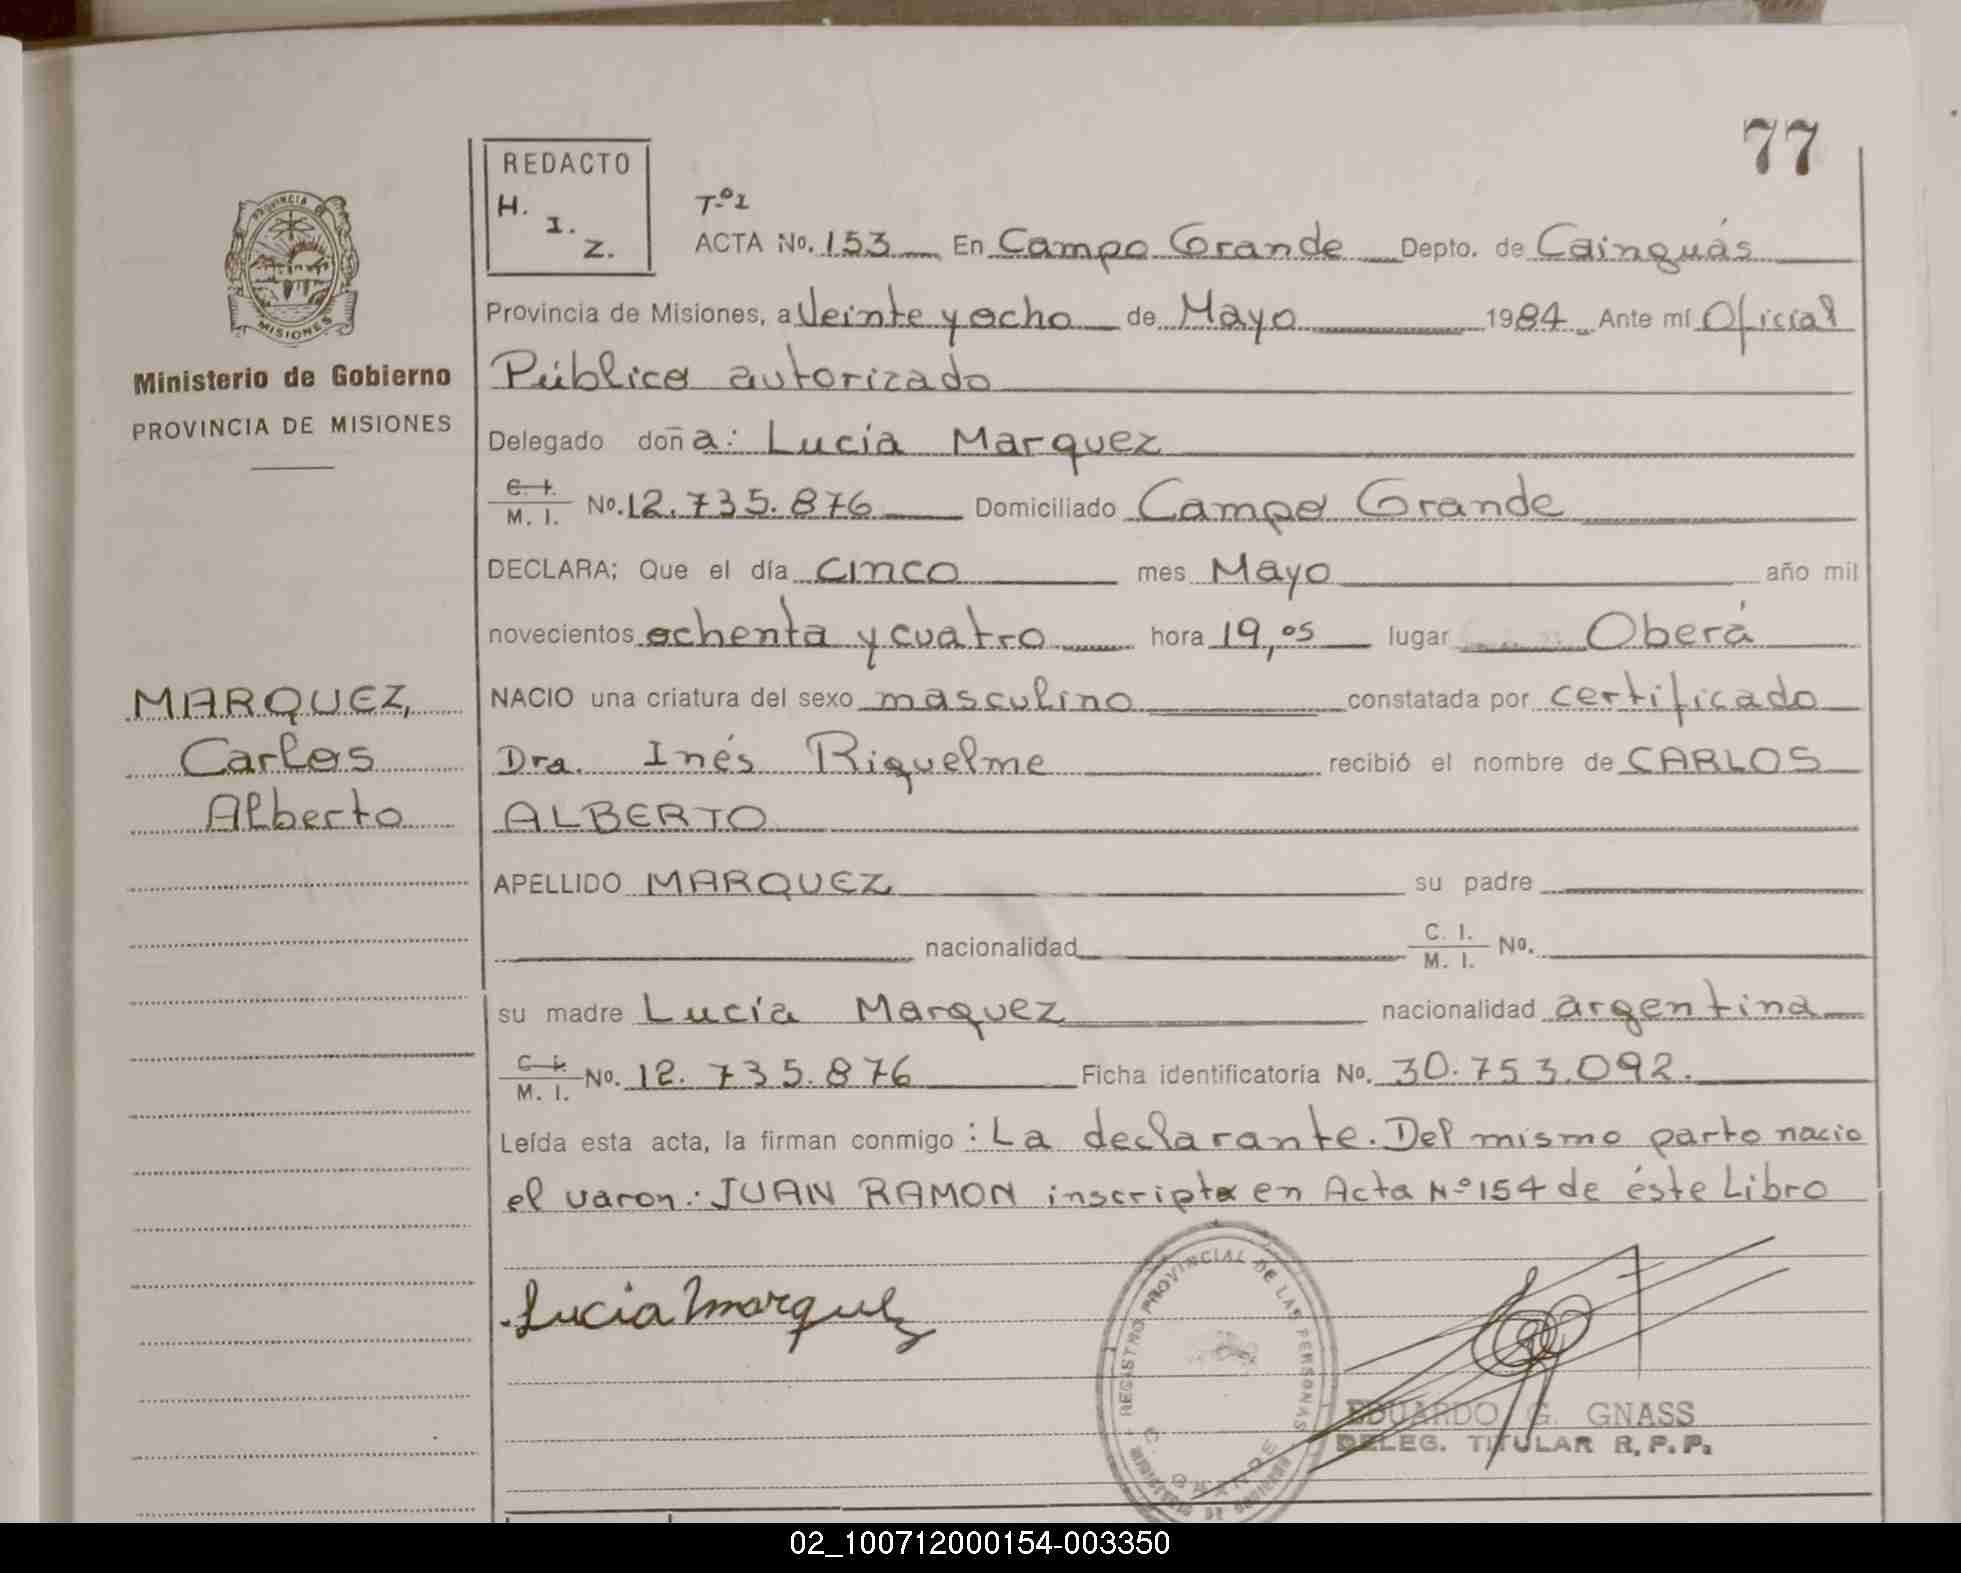 77
REDACTO
H.
I.
Z.
PROVINCIA
MISIONES
Ministerio de Gobierno
PROVINCIA DE MISIONES
Tº1
ACTA No. 153 En Campo Grande Depto. de Cainguás
Provincia de Misiones, a Veinte y ocho de Mayo 1984 Ante mí Oficial
Público autorizado
Delegado doña: Lucía Marquez
C. I.
M. I. No. 12.735.876 Domiciliado Campo Grande
DECLARA; Que el día cinco mes Mayo año mil
novecientos ochenta y cuatro hora 19,05 lugar Oberá
MARQUEZ,
Carlos
Alberto
NACIO una criatura del sexo masculino constatada por certificado
Dra. Inés Riquelme recibió el nombre de CARLOS
ALBERTO
APELLIDO MARQUEZ su padre
nacionalidad C. I.
M. I. No.
su madre Lucía Marquez nacionalidad argentina
C. I.
M. I. No. 12.735.876 Ficha identificatoria No. 30.753.092.
Leída esta acta, la firman conmigo: La declarante. Del mismo parto nacio
el varon: JUAN RAMON inscripto en Acta Nº 154 de éste Libro
Lucia Marquez
REGISTRO PROVINCIAL DE LAS PERSONAS
EDUARDO G. GNASS
DELEG. TITULAR R. P. P.
02_100712000154-003350